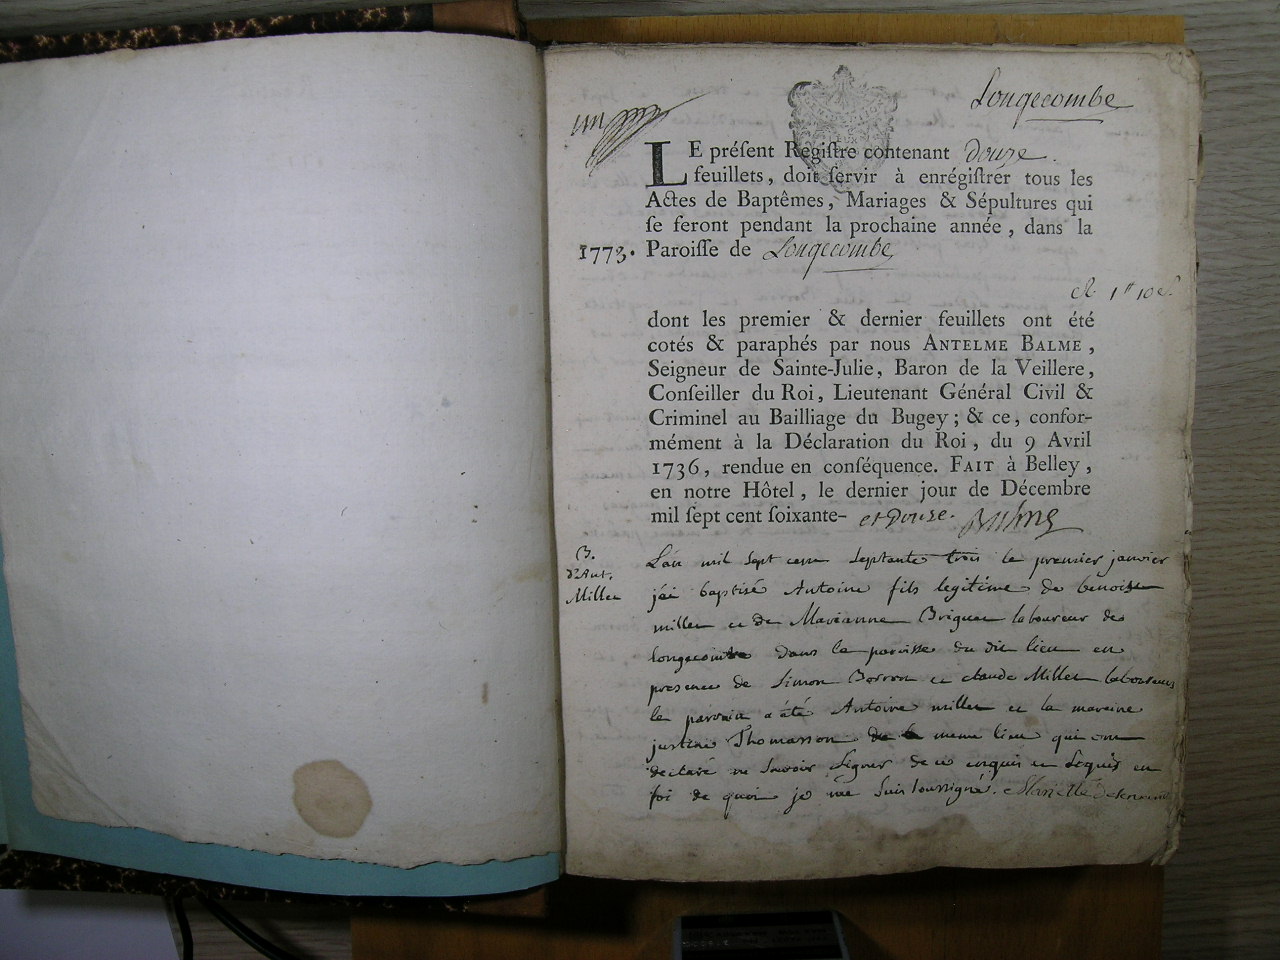 Longecombe
un
LE préſent Regiſtre contenant douze
feuillets, doit ſervir à enrégiſtrer tous les
Actes de Baptêmes, Mariages & Sépultures qui
ſe feront pendant la prochaine année, dans la
1773. Paroiſſe de Longecombe
dont les premier & dernier feuillets ont été
cotés & paraphés par nous ANTELME BALME,
Seigneur de Sainte-Julie, Baron de la Veillere,
Conſeiller du Roi, Lieutenant Général Civil &
Criminel au Bailliage du Bugey; & ce, confor-
mément à la Déclaration du Roi, du 9 Avril
1736, rendue en conſéquence. FAIT à Belley,
en notre Hôtel, le dernier jour de Décembre
mil ſept cent ſoixante- et Douze. Balme
B.
d'Ant.
Millet
L'an mil sept cent septante trois le premier janvier
j'ai baptisé Antoine fils legitime de benoist
millet et de Marianne Briguet laboureur de
longecombe dans la paroisse du dit lieu en
presence de Simon Borron et claude Millet laboureurs
le parrain a été Antoine millet et la maraine
justine Thomasson de la meme lieu qui ont
declaré ne savoir signer de ce enquis et requis en
foi de quoi je me suis soussigné.